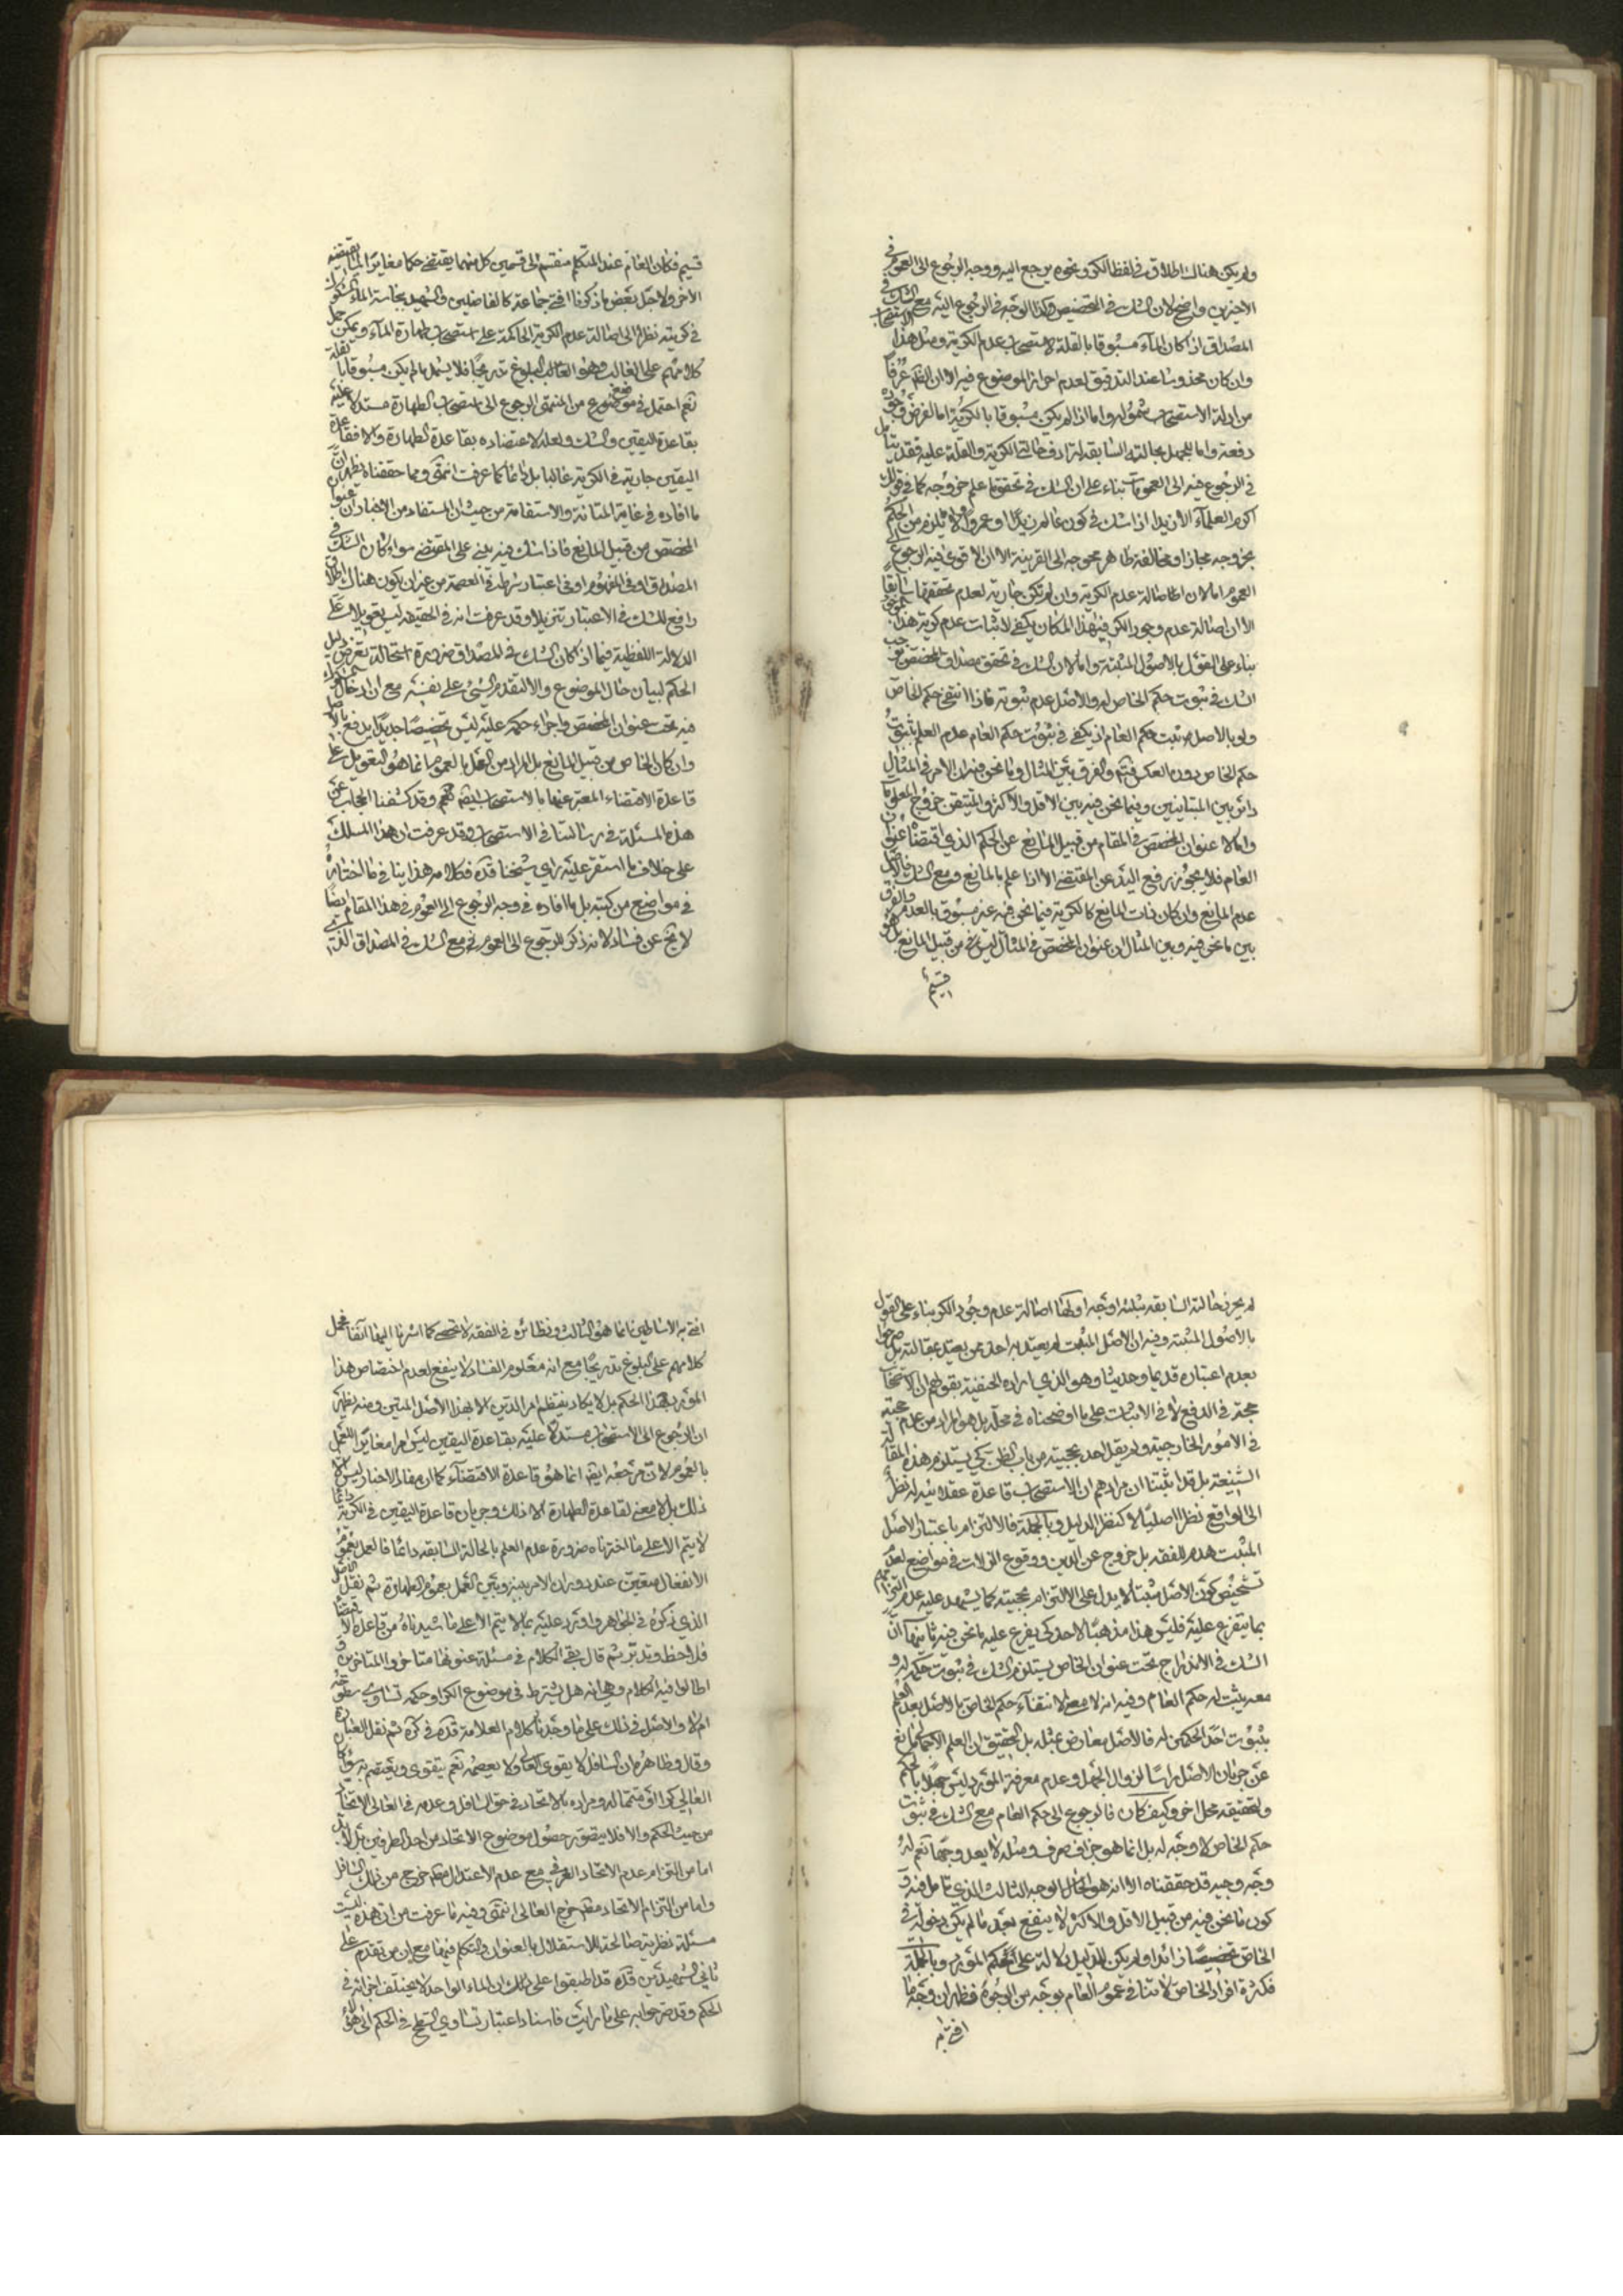 ولم يكن هناك اطلاق في لفظ الكر ونحوه يرجع اليه ووجه الرجوع الى العموم في
الاخيرين واضح لان الشك في التخصيص وكذا الوجه في الرجوع اليه مع الشك في
المصداق اذا كان الماء مسبوقا بالقلة لاستصحاب عدم الكرية ومثل هذا الاستصحاب
وان كان مخدوشا عند التدقيق لعدم احراز الموضوع فيه الا ان الظ عرفا
من ادلة الاستصحاب شموله واما اذا لم يكن مسبوقا بالكرية اما لفرض وجوده
دفعة واما للجهل بحالته السابقة لترادف حالتي الكرية والقلة عليه فقد يتأمل
في الرجوع فيه الى العمومات بناء على ان الشك في تحققها علم خروجه كما في قولك
اكرم العلماء الا زيدا اذا شك في كون عالم زيدا او عمروا ولا يلزم من الحكم
بخروجه مجاز او مخالفة ظاهر محوجة الى القرينة الا ان الاقوى فيه الرجوع الى
العموم اما لان اصالة عدم الكرية وان لم تكن جارية لعدم تحققها سابقا
الا ان اصالة عدم وجود الكر في هذا المكان يكفي لاثبات عدم كرية هذا الموجود
بناء على القول بالاصول المثبتة واما لان الشك في تحقق مصداق المخصص يوجب
الشك في ثبوت حكم الخاص له والاصل عدم ثبوته فاذا انتفى حكم الخاص
ولو بالاصل ثبت حكم العام اذ يكفي في ثبوت حكم العام عدم العلم بثبوت
حكم الخاص دون العكس فتم والفرق بين المثال وما نحن فيه ان الامر في المثال
دائر بين المتباينين وفيما نحن فيه بين الاقل والاكثر والمتيقن خروج المعلوم
واما لان عنوان المخصص في المقام من قبيل المانع عن الحكم الذي اقتضاه عنوان
العام فلا يجوز رفع اليد عن المقتضي الا اذا علم بالمانع ومع الشك فالاصل
عدم المانع وان كان ذات المانع كالكرية فيما نحن فيه غير مسبوق بالعدم والفرق
بين ما نحن فيه وبين المثال ان عنوان المخصص في المثال ليس من قبيل المانع بل هو
قسيم
قسيم فكان العام عند المتكلم منقسم الى قسمين كل منهما يقتضي حكما مغايرا لما يقتضيه
الاخر ولاجل بعض ما ذكرنا افتى جماعة كالفاضلين والشهيد بنجاسة الماء المشكوك
في كريته نظرا الى اصالة عدم الكرية الحاكمة على استصحاب طهارة الماء ويمكن حمل
كلامهم على الغالب وهو الغالب البلوغ تدريجا فلا يشمل ما لم يكن مسبوقا بالقلة
نعم احتمل في موضع من المنتهى الرجوع الى استصحاب الطهارة مستدلا عليه
بقاعدة اليقين والشك ولعله لاعتضاده بقاعدة الطهارة والا فقاعدة
اليقين جارية في الكرية غالبا بل دائما كما عرفت انتهى ومما حققناه يظهر ان
ما افاده في غاية المتانة والاستقامة من حيث ان المستفاد من الاخبار ان عنوان
المخصص من قبيل المانع فاذا شك فيه يبنى على المقتضي سواء كان الشك في
المصداق او في المفهوم او في اعتبار شرط في العصمة من غير ان يكون هناك اطلاق
رافع للشك في الاعتبار تنزيلا وقد عرفت انه في الحقيقة ليس تعويلا على
الدلالة اللفظية فيما اذا كان الشك في المصداق ضرورة استحالة تعرض دليل
الحكم لبيان حال الموضوع والا لتقدم الشيء على نفسه مع ان ادخال
فيه تحت عنوان المخصص واجراء حكمه عليه ليس تخصيصا جديدا يدفع بالاصل
وان كان الخاص من قبيل المانع بل المراد من العمل بالعموم انما هو التعويل على
قاعدة الاقتضاء المعبر عنها بالاستصحاب ايضا فتم وقد كشفنا الحجاب عن
هذه المسئلة في رسالتنا في الاستصحاب وقد عرفت ان هذا المسلك
على خلاف ما استقر عليه راي شيخنا قده فكلامه هذا ينافي ما اختاره
في مواضع من كتبه بل ما افاده في وجه الرجوع الى العموم في هذا المقام ايضا
لا يخ عن فساد لانه ذكر للرجوع الى العموم في مع الشك في المصداق الذي
لم يحرز حالته السابقة ثلثة اوجه اولها اصالة عدم وجود الكر بناء على القول
بالاصول المثبتة وفيه ان الاصل المثبت لم يعتد به احد ممن يعتد بمقالته بل صرحوا
بعدم اعتباره قديما وحديثا وهو الذي اراده الحنفية بقولهم ان الاستصحاب
حجة في الدفع لا في الاثبات على ما اوضحناه في محله بل هو المراد من عدم حجيته
في الامور الخارجية ولم يقل احد بحجيته من باب الظن كي يستلزم هذه المقالة
الشنيعة بل قد اثبتنا ان مرادهم ان الاستصحاب قاعدة عقلائية له نظر
الى الواقع نظرا اصليا لا كنظر الدليل وبالجملة فالالتزام باعتبار الاصل
المثبت هدم للفقه بل خروج عن الدين ووقوع الزلات في مواضع لعدم
تشخيص كون الاصل مثبتا لا يدل على الالتزام بحجيته كما يشهد عليه عدم التزامهم
بما يتفرع عليه فليس هذا مذهبا لاحد كي يفرع عليه ما نحن فيه ثانيها ان
الشك في الاندراج تحت عنوان الخاص يستلزم الشك في ثبوت حكمه له و
معه يثبت له حكم العام وفيه انه لا معنى لانتفاء حكم الخاص بالاصل بعد العلم
بثبوت احد الحكمين له فالاصل معارض بمثله بل التحقيق ان العلم الاجمالي مانع
عن جريان الاصل راسا لزوال الجهل وعدم معرفة المورد ليس جهلا بالحكم
ولتحقيقه محل اخر وكيف كان فالرجوع الى حكم العام مع الشك في ثبوت
حكم الخاص لا وجه له بل انما هو جزاف صرف ومثله لا يعد وجها نعم له
وجه وجيه قد حققناه الا انه هو الحال الوجه الثالث الذي تأمل فيه و
كون ما نحن فيه من قبيل الاقل والاكثر لا ينفع بعد ما لم يكن دخوله في
الخاص تخصيصا زائدا ولم يكن للدليل دلالة على حكم المورد وبالجملة
فكثرة افراد الخاص لا تنافي عموم العام بوجه من الوجوه فظهر ان وجه ما
افتى به
افتى به الاساطين انما هو الثالث ونظائره في الفقه لا تحصى كما اشرنا اليها آنفا فحمل
كلامهم على البلوغ تدريجا مع انه معلوم الفساد لا ينفع لعدم اختصاص هذا
المورد بهذا الحكم بل لا يكاد ينتظم امر الدين الا بهذا الاصل المتين ومنه يظهر
ان الرجوع الى الاستصحاب مستدلا عليه بقاعدة اليقين ليس امرا مغايرا للعمل
بالعموم لان مرجعه ايضا انما هو قاعدة الاقتضاء كما ان مفاد الاخبار ليس الا
ذلك بل لا معنى لقاعدة الطهارة الا ذلك وجريان قاعدة اليقين في الكرية دائما
لا يتم الا على ما اخترناه ضرورة عدم العلم بالحالة السابقة دائما فالعمل بعموم
الانفعال متعين عند دوران الامر بينه وبين العمل بعموم الطهارة ثم نقل الاصل
الذي ذكره في الجواهر واورد عليه بما لا يتم الا على ما شيدناه من قاعدة الاقتضاء
فلاحظ وتدبر ثم قال بقي الكلام في مسئلة عنونها متاخروا المتاخرين و
اطالوا فيه الكلام وهي انه هل يشترط في موضوع الكر او حكمه تساوي سطوحه
ام لا والاصل في ذلك على ما وجدنا كلام العلامة قده في كره ثم نقل العبارة
وقال وظاهره ان السافل لا يقوى العالي ولا يعصمه نعم يتقوى ويعتصم به سواء كان
العالي كرا او متمما له ومراده بالاتحاد في حق السافل وعدمه في العالي الاتحاد
من حيث الحكم والا فلا يتصور حصول موضوع الاتحاد من احد الطرفين بل لا بد
اما من التزام عدم الاتحاد العرفي مع عدم الاعتدال فقد خرج من ذلك السافل
واما من التزام الاتحاد فقد خرج العالي انتهى وفيه ما عرفت من ان هذه ليست
مسئلة نظرية صالحة للاستقلال بالعنوان والتكلم فيها مع ان من تقدم على
ثاني الشهيدين قده قد اطبقوا على ذلك ان الماء الواحد لا يختلف اجزائه في
الحكم وقد صرحوا به على ما رايت فاسناد اعتبار تساوي السطح في الحكم الى هؤلاء